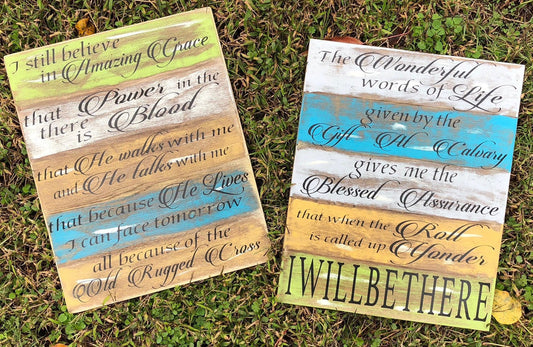 I still believe
in Amazing Grace
that Power in the
there is Blood
that He walks with me
and He talks with me
that because He Lives
I can face tomorrow
all because of the
Old Rugged Cross
The Wonderful
words of Life
given by the
Gift At Calvary
gives me the
Blessed Assurance
that when the Roll
is called up Yonder
IWILLBETHERE